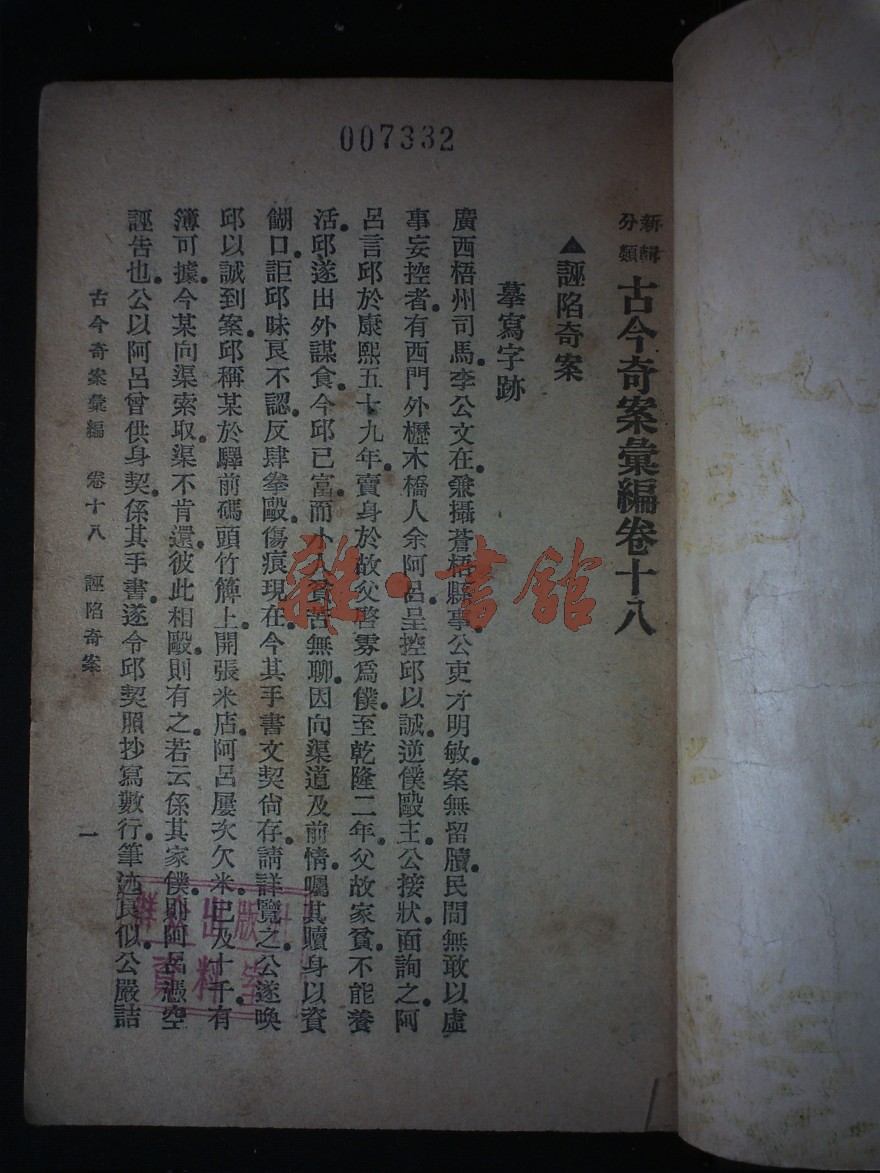 007332
新輯分類 古今奇案彙編卷十八
▲誣陷奇案
摹寫字跡
廣西梧州司馬李公文在兼攝蒼梧縣事公吏才明敏案無留牘民間無敢以虛
事妄控者有西門外櫪木橋人余阿呂呈控邱以誠逆僕毆主公接狀面詢之阿
呂言邱於康熙五十九年賣身於故父啓雰爲僕至乾隆二年父故家貧不能養
活邱遂出外謀食今邱已富而小人貧苦無聊因向渠道及前情囑其贖身以資
餬口詎邱昧良不認反肆拳毆傷痕現在今其手書文契尙存請詳覽之公遂喚
邱以誠到案邱稱某於驛前碼頭竹簰上開張米店阿呂屢次欠米已及十千有
簿可據今某向渠索取渠不肯還彼此相毆則有之若云係其家僕則阿呂憑空
誣告也公以阿呂曾供身契係其手書遂令邱契照抄寫數行筆迹良似公嚴詰
古今奇案彙編 卷十八 誣陷奇案 一
雜·書館
群众出版社
資料室